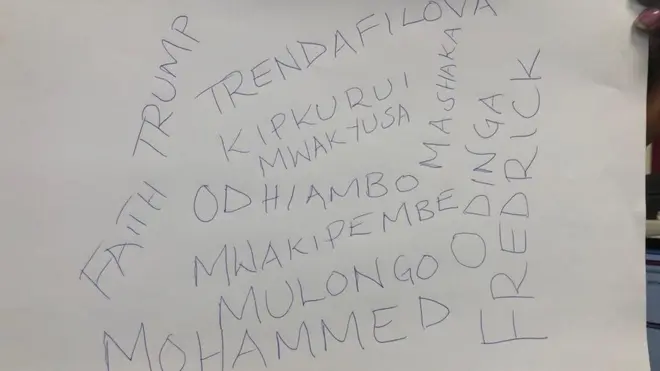 TRUMP
FAITH
TRENDAFILOVA
KIPKURUI
MWAKYUSA
ODHIAMBO
MWAKIPEMBE
MULONGO
MOHAMMED
MASHAKA
ODINGA
FREDRICK